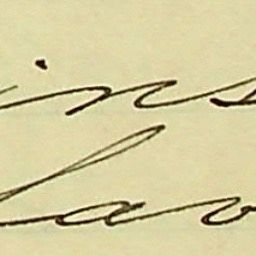 ins
lav